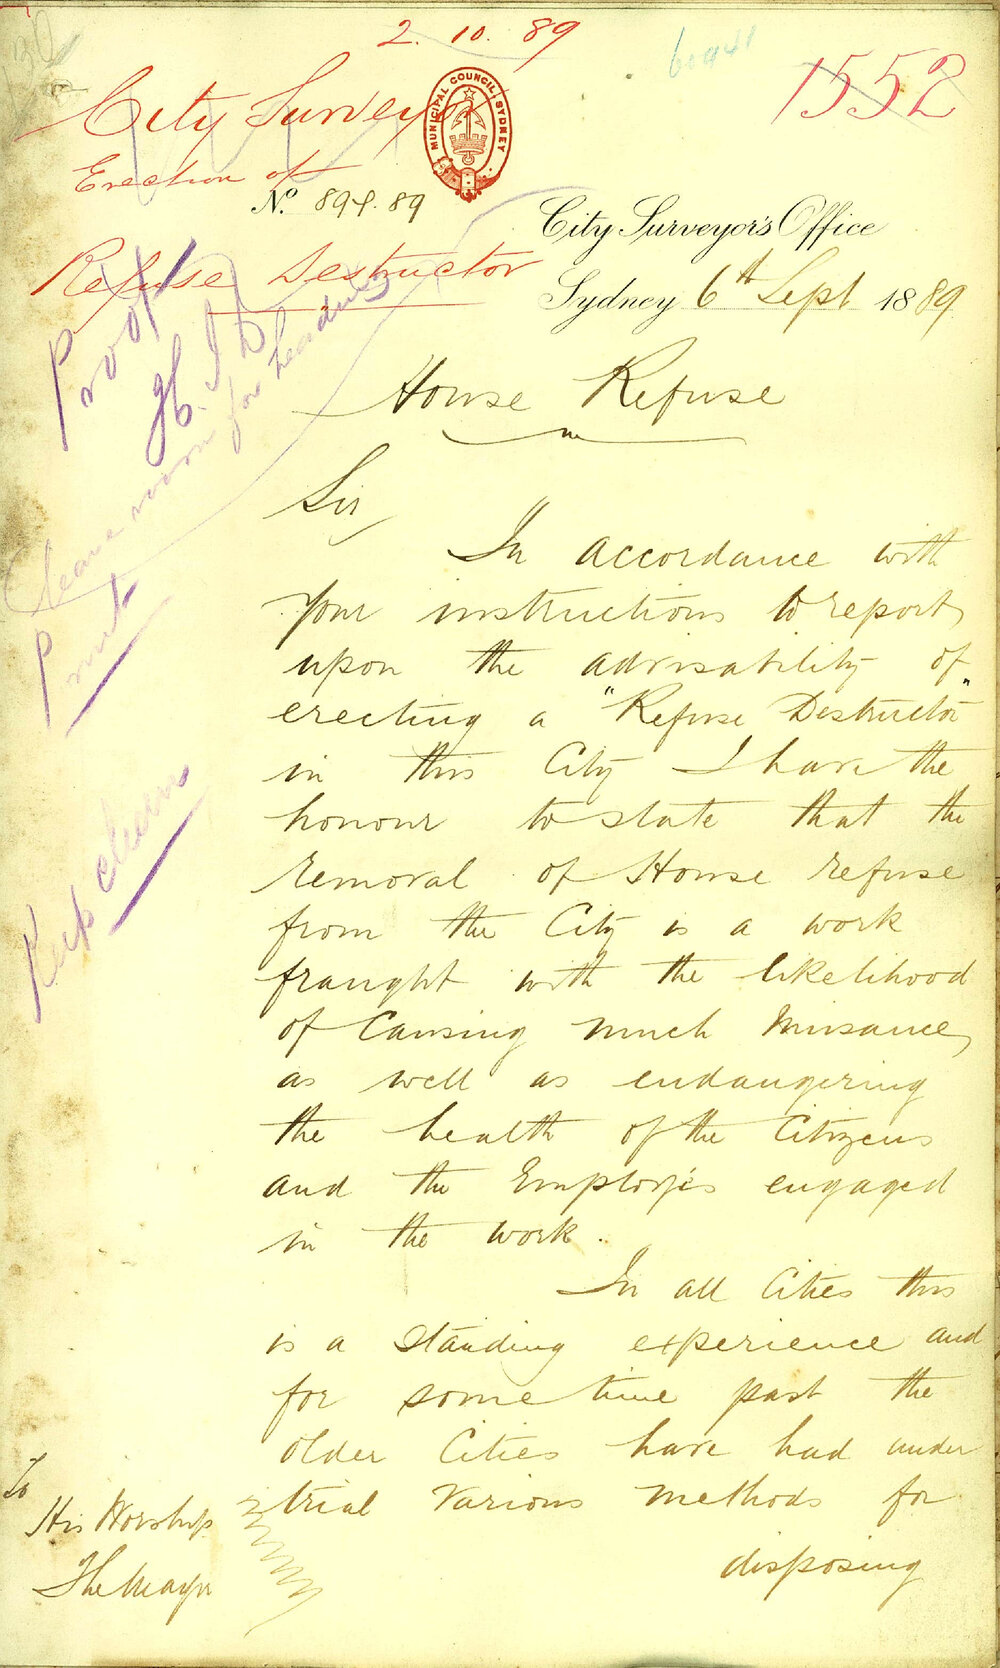 2. 10. 89
1552
City Surveyor
MUNICIPAL COUNCIL SYDNEY
Erection of
No. 894.89
City Surveyor's Office
Refuse Destructor
Sydney 6th Sept 1889
Proof
H. I. D
Leave room for heading
Print
Keep clean
House Refuse
Sir
In accordance with
your instructions to report
upon the advisability of
erecting a "Refuse Destructor"
in this City I have the
honour to state that the
removal of House refuse
from the City is a work
fraught with the likelihood
of causing much Nuisance,
as well as endangering
the health of the Citizens
and the Employés engaged
in the work.
In all Cities this
is a standing experience and
for some time past the
older Cities have had under
trial various methods for
disposing
To
His Worship
The Mayor